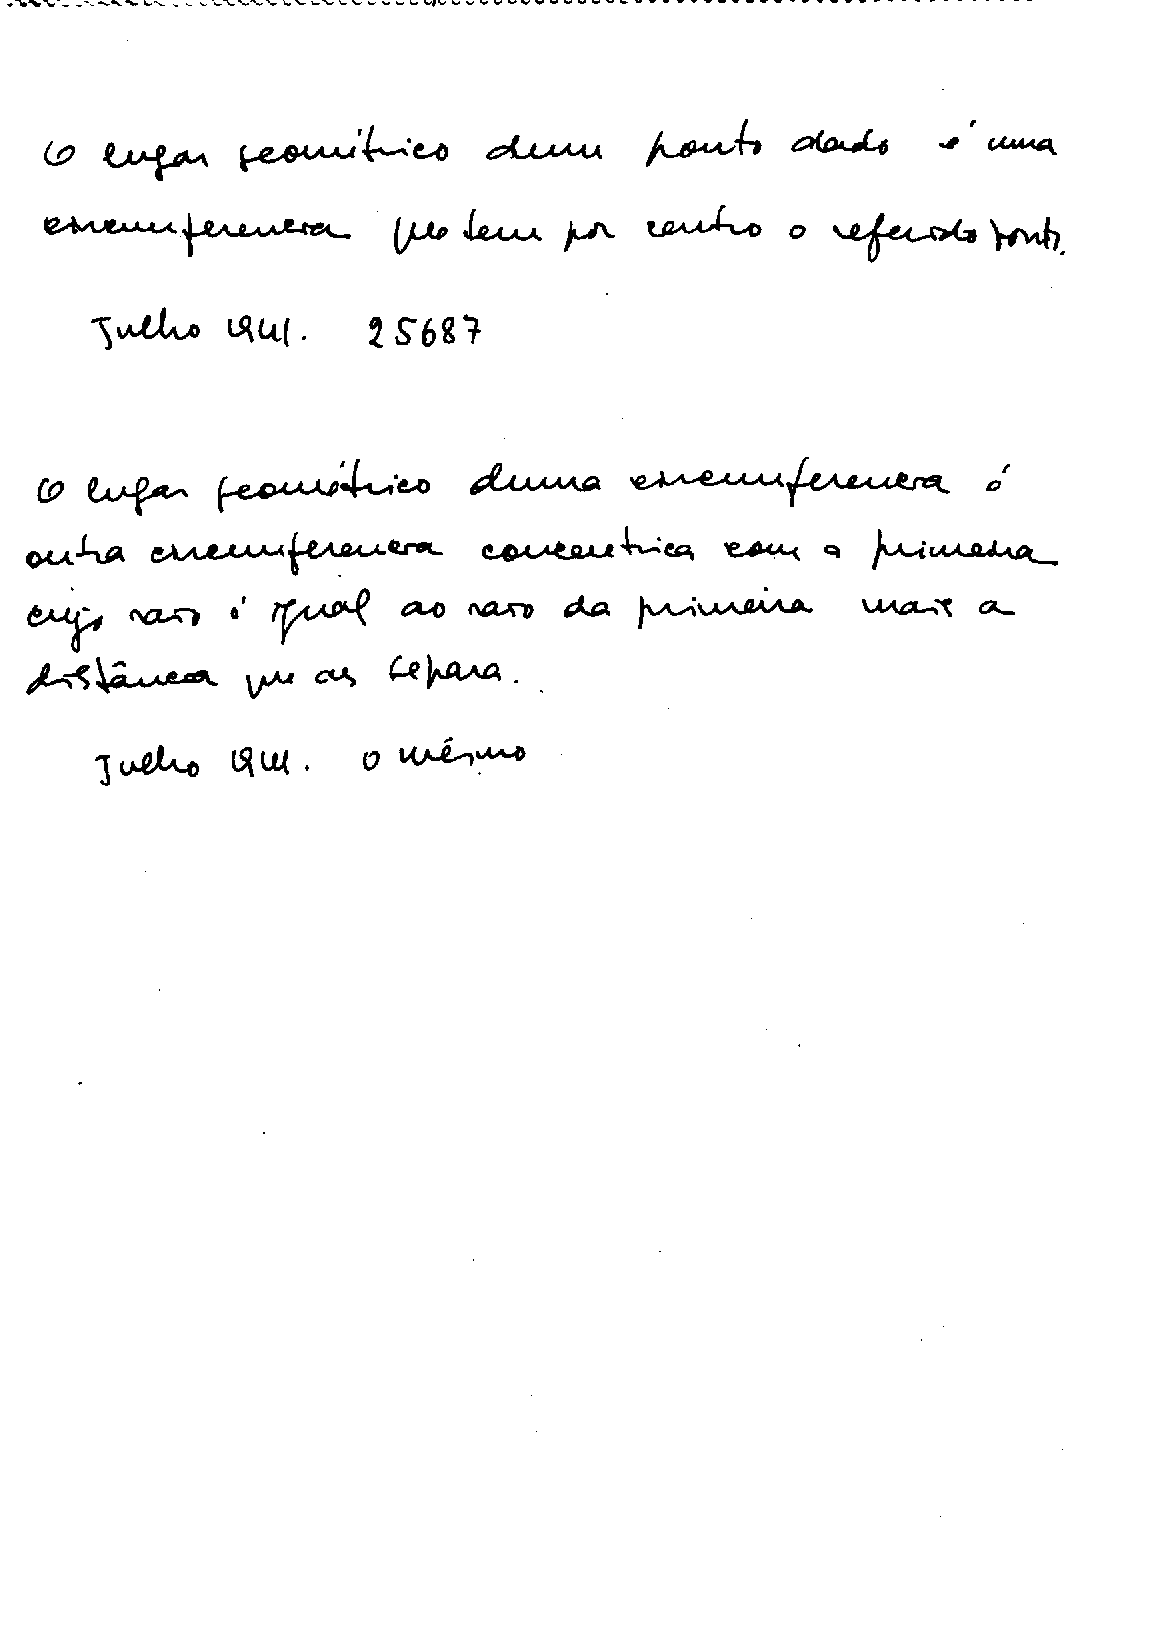 O lugar geométrico dum ponto dado é uma
circunferencia que tem por centro o referido ponto.
Julho 1941. 25687
O lugar geométrico duma circunferencia é
outra circunferencia concentrica com a primeira
cujo raio é igual ao raio da primeira mais a
distância que as separa.
Julho 1941. O mésmo